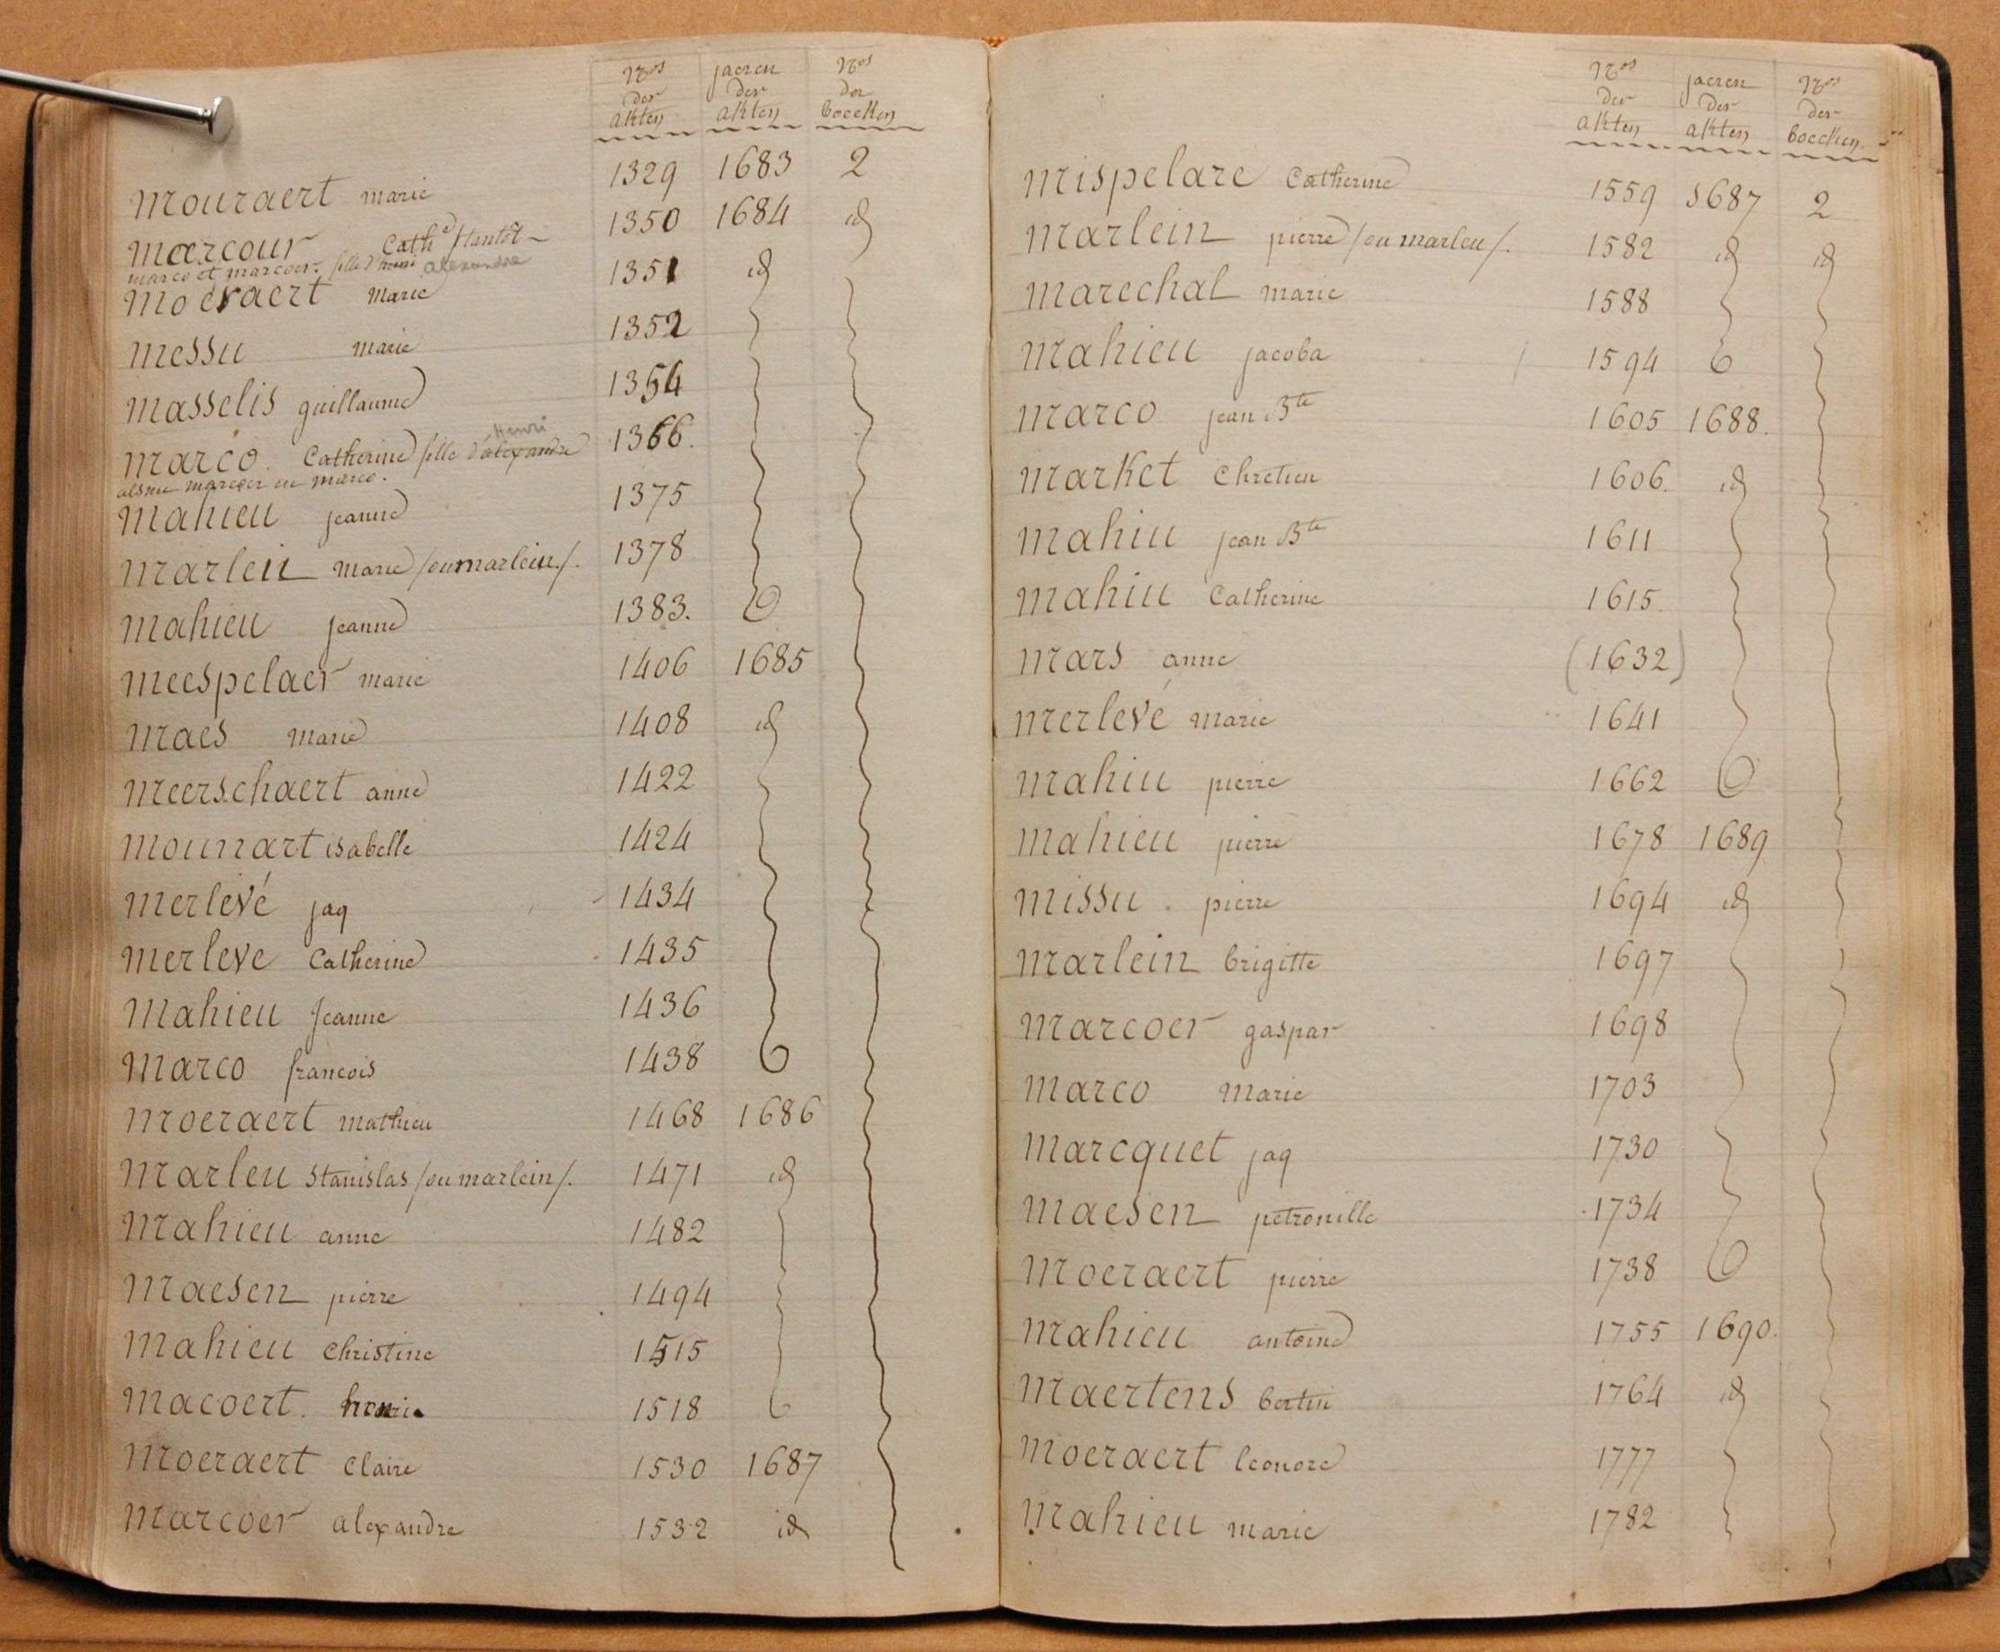 Nos jaeren Nos
der der der
akten akten boecken
mouraert marie 1329 1683 2
marcour Cath /tantôt 1350 1684 id
marco et marcoer. fille d'henri alexandre
moeraert marie 1351 id
messu marie 1352
masselis guillaume 1354
Henri
marco. Catherine fille d'alexandre 1366.
marcoer ou marco.
mahieu jeanne 1375
marleu marie /ou marlein/. 1378
mahieu jeanne 1383.
meespelaer marie 1406 1685
maes marie 1408 id
meerschaert anne 1422
mounart isabelle 1424
merlevé jaq 1434
merleve Catherine 1435
mahieu Jeanne 1436
marco francois 1438
moeraert mathieu 1468 1686
marleu Stanislas /ou marlein/. 1471 id
mahieu anne 1482
maesen pierre 1494
mahieu Christine 1515
macoert. henri 1518
moeraert Claire 1530 1687
marcoer alexandre 1532 id
Nos jaeren Nos
der der der
akten akten boecken
mispelare Catherine 1559 1687 2
marlein pierre /ou marleu/. 1582 id id
marechal marie 1588
mahieu jacoba 1594
marco jean Bte 1605 1688.
market Chretien 1606. id
mahiu jean Bte 1611
mahiu Catherine 1615.
mars anne (1632)
merlevé marie 1641
mahiu pierre 1662
mahieu pierre 1678 1689
missu . pierre 1694 id
marlein brigitte 1697
marcoer gaspar 1698
marco marie 1703
marcquet jaq 1730
maesen petronille 1734
moeraert pierre 1738
mahieu antoine 1755 1690.
maertens bertin 1764 id
moeraert leonore 1777
mahieu marie 1782